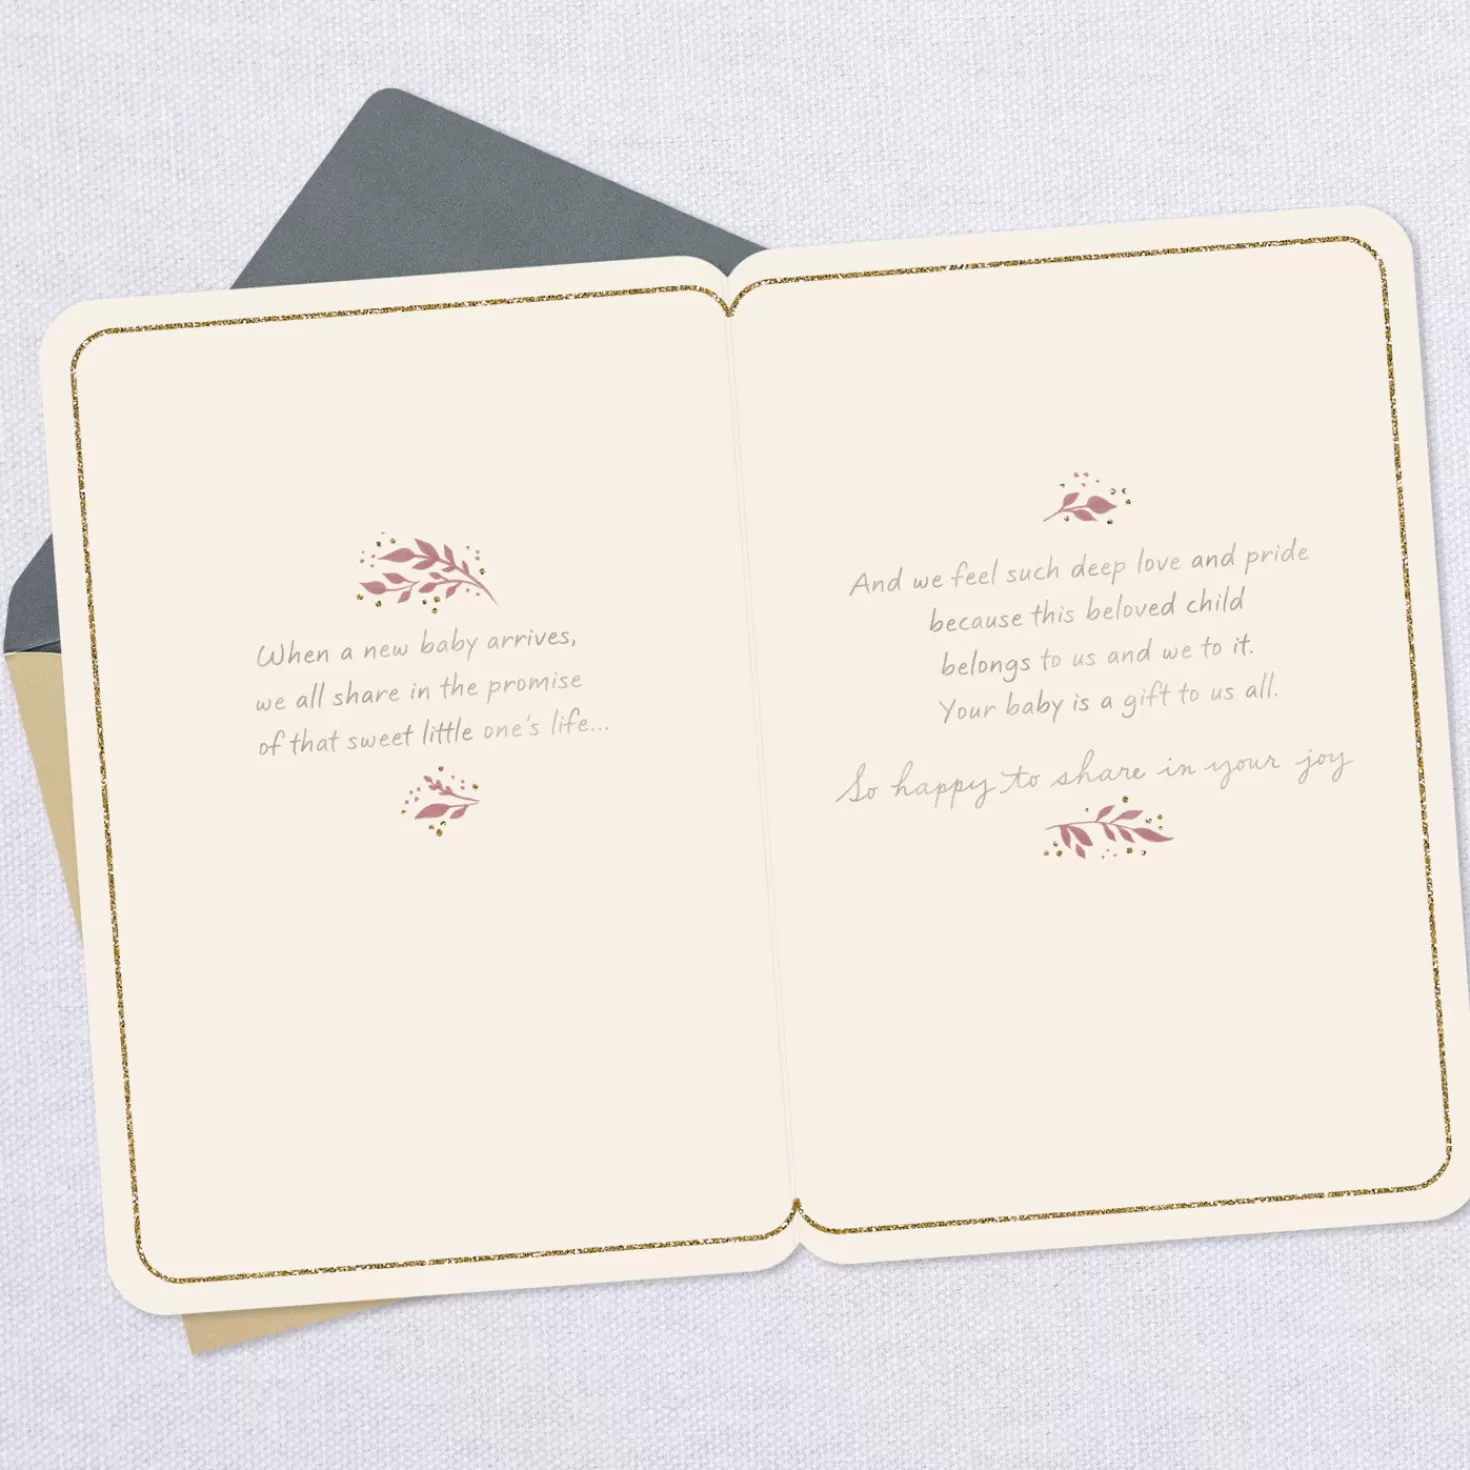 When a new baby arrives,
we all share in the promise
of that sweet little one's life...
And we feel such deep love and pride
because this beloved child
belongs to us and we to it.
Your baby is a gift to us all.
So happy to share in your joy